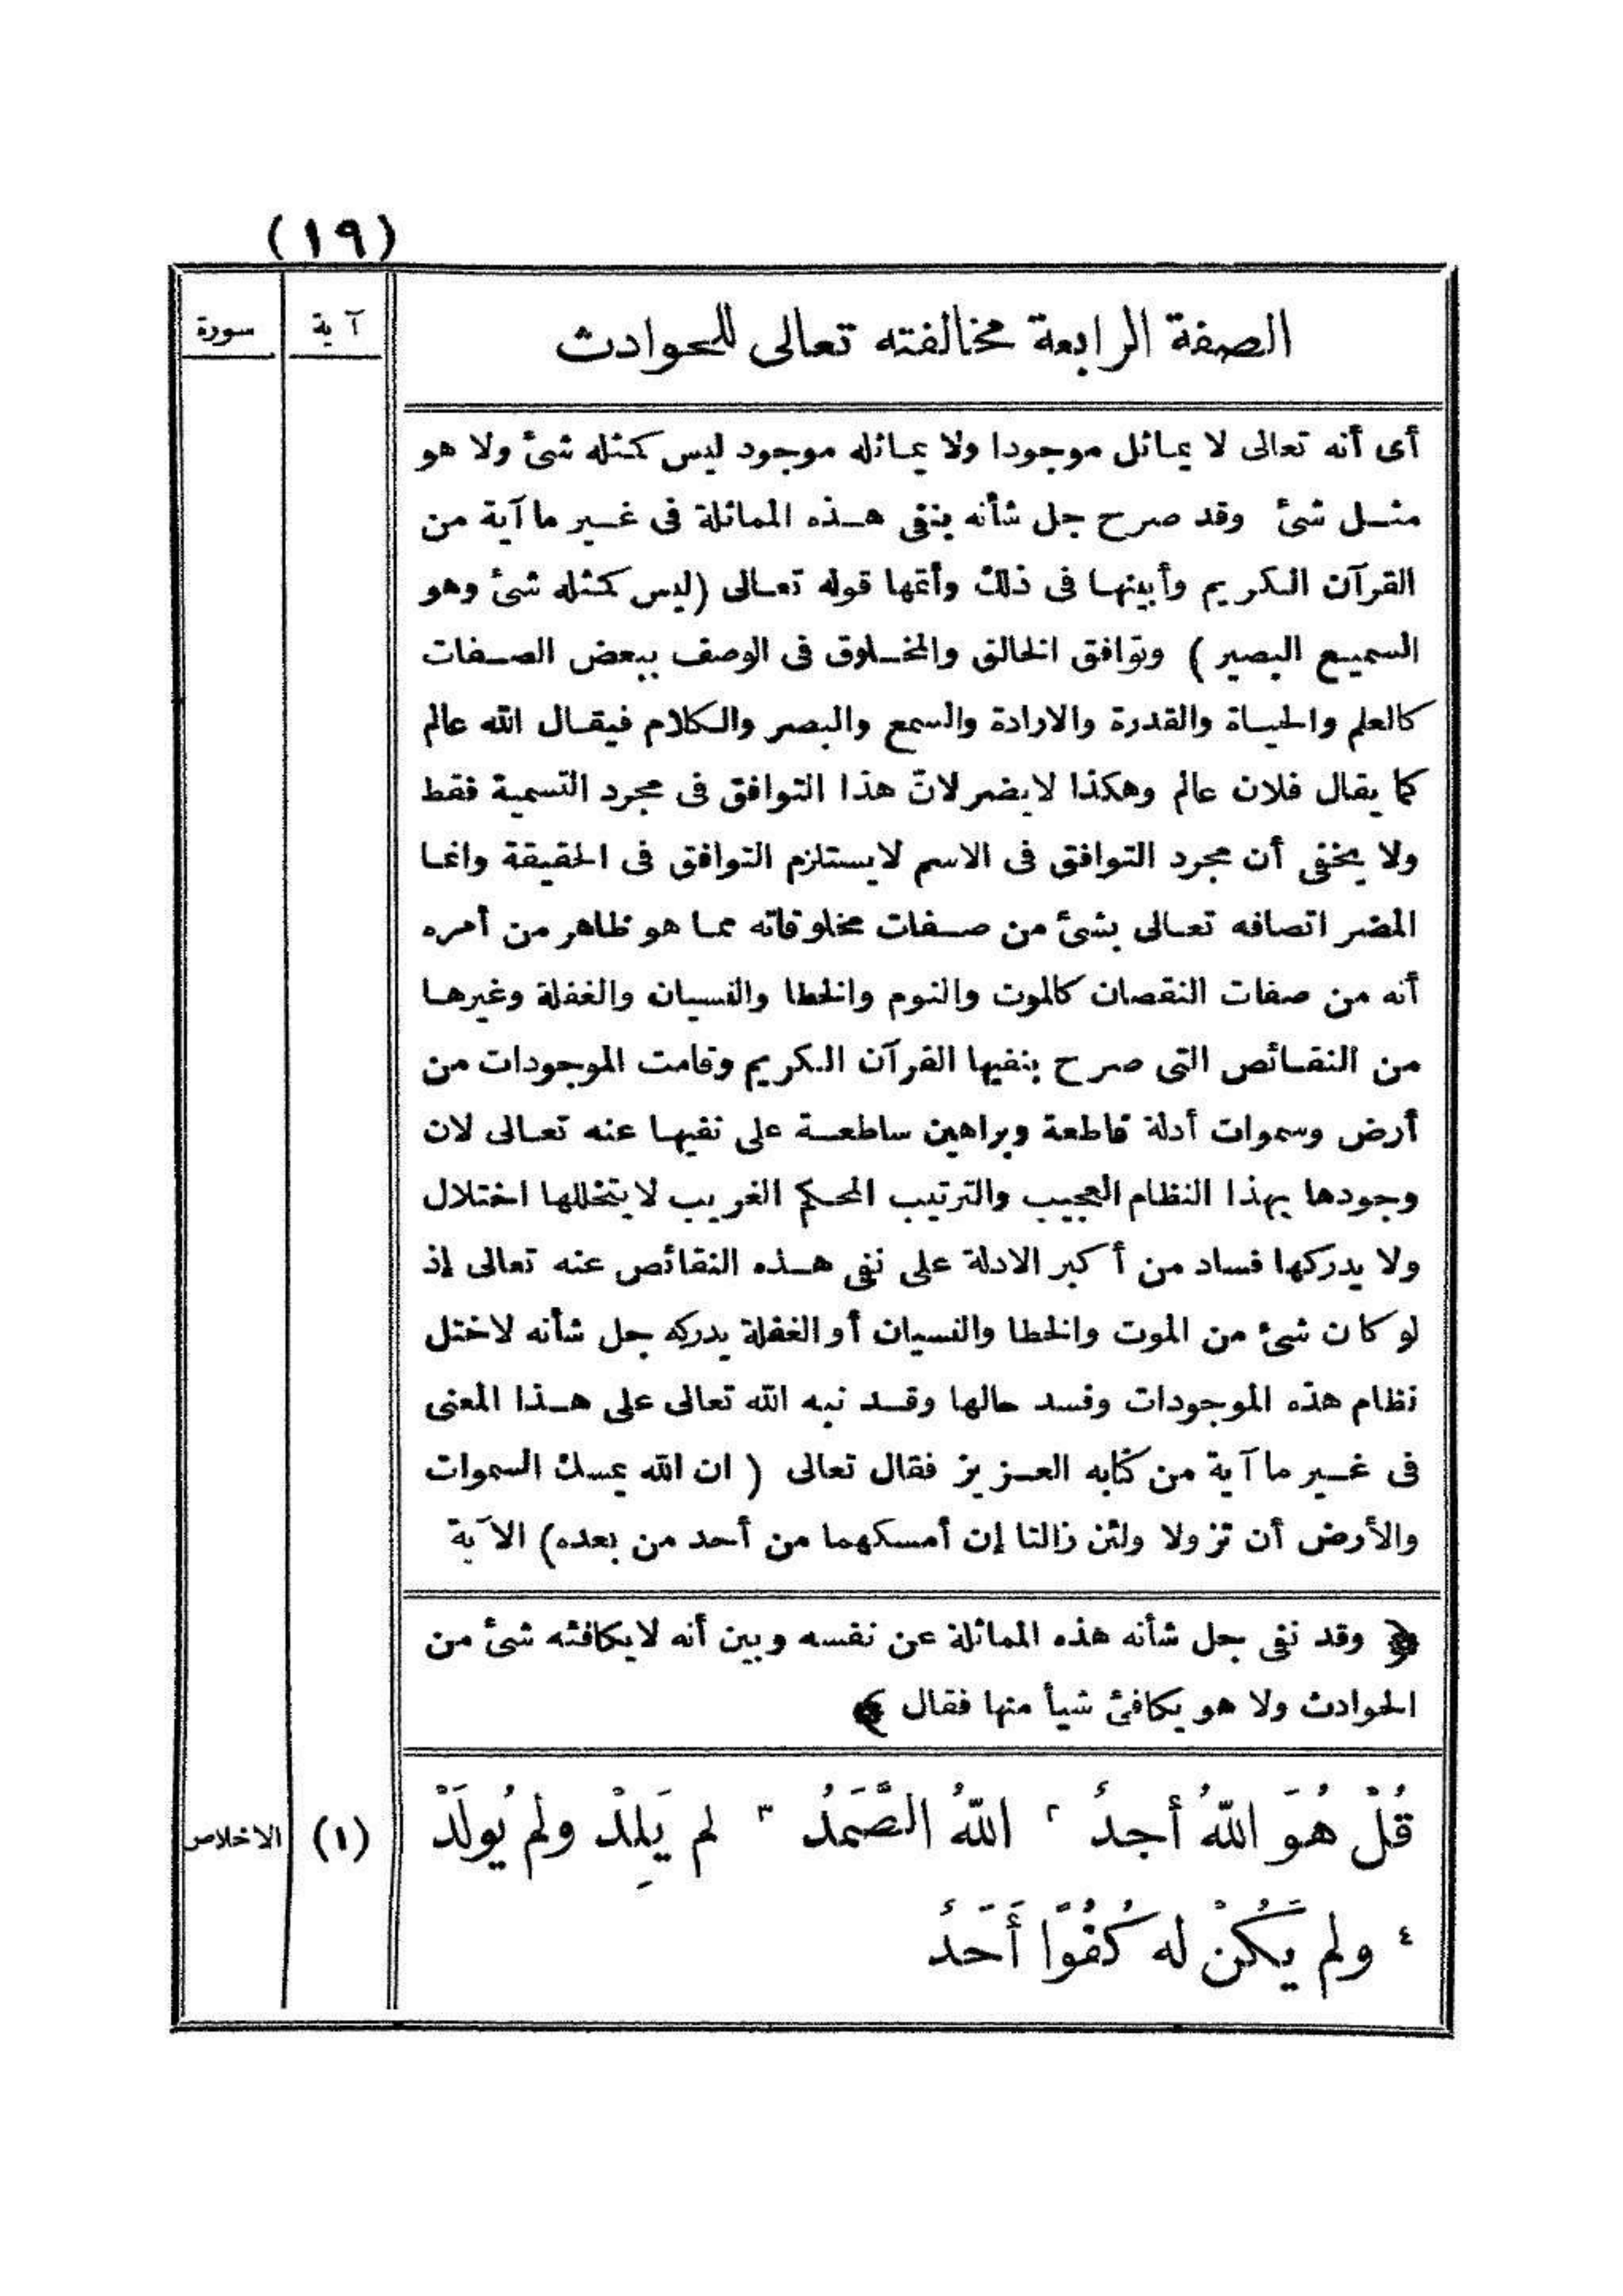 (١٩)
سورة
آية
الصفة الرابعة مخالفته تعالى للحوادث
أى أنه تعالى لا يماثل موجودا ولا يماثله موجود ليس كمثله شئ ولا هو
مثل شئ وقد صرح جل شأنه بنفى هذه المماثلة فى غير ما آية من
القرآن الكريم وأبينها فى ذلك وأتمها قوله تعالى (ليس كمثله شئ وهو
السميع البصير) وتوافق الخالق والمخلوق فى الوصف ببعض الصفات
كالعلم والحياة والقدرة والارادة والسمع والبصر والكلام فيقال الله عالم
كما يقال فلان عالم وهكذا لايضر لانّ هذا التوافق فى مجرد التسمية فقط
ولا يخفى أن مجرد التوافق فى الاسم لايستلزم التوافق فى الحقيقة وانما
المضر اتصافه تعالى بشئ من صفات مخلوقاته مما هو ظاهر من أمره
أنه من صفات النقصان كالموت والنوم والخطا والنسيان والغفلة وغيرها
من النقائص التى صرح بنفيها القرآن الكريم وقامت الموجودات من
أرض وسموات أدلة قاطعة وبراهين ساطعة على نفيها عنه تعالى لان
وجودها بهذا النظام العجيب والترتيب المحكم الغريب لايتخللها اختلال
ولا يدركها فساد من أكبر الادلة على نفى هذه النقائص عنه تعالى إذ
لو كان شئ من الموت والخطا والنسيان أو الغفلة يدركه جل شأنه لاختل
نظام هذه الموجودات وفسد حالها وقد نبه الله تعالى على هذا المعنى
فى غير ما آية من كتابه العزيز فقال تعالى (ان الله يمسك السموات
والأرض أن تزولا ولئن زالتا إن أمسكهما من أحد من بعده) الآية
﴿ وقد نفى جل شأنه هذه المماثلة عن نفسه وبين أنه لايكافئه شئ من
الحوادث ولا هو يكافئ شيأ منها فقال ﴾
قُلْ هُوَ اللهُ أجدُ ٢ اللهُ الصَّمَدُ ٣ لم يَلِدْ ولم يُولَدْ
(١)
الاخلاص
٤ ولم يَكُنْ له كُفُوًا أَحَدُ